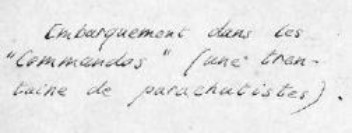 Embarquement dans les
"Commandos" (une tren-
taine de parachutistes).